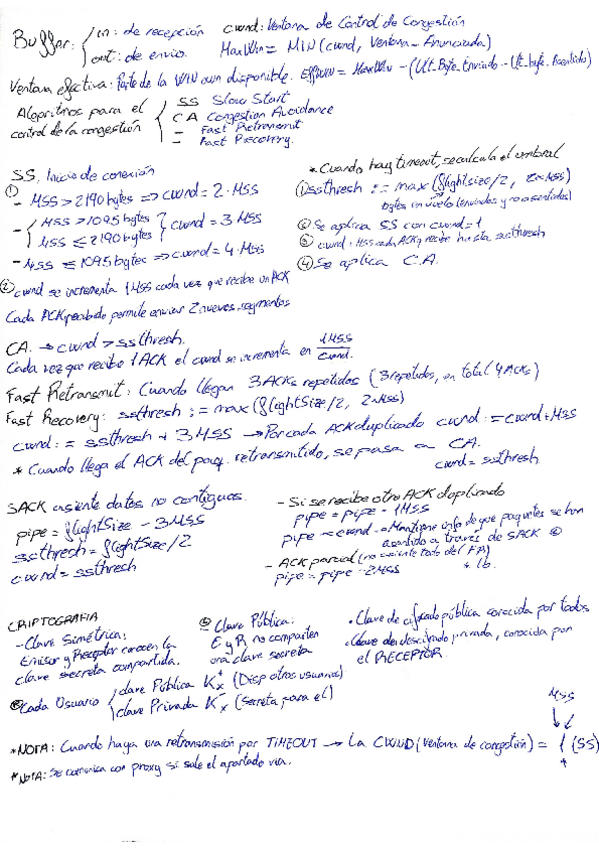 Buffer: in: de recepción cwnd: Ventana de Control de Congestión
out: de envio. MaxWin = MIN (cwnd, Ventana-Anunciada)
Ventana efectiva: Parte de la WIN aun disponible. EffWIN = MaxWin - (Ult_Byte_Enviado - Ult_byte_Asentido)
Algoritmos para el control de la congestión
SS Slow Start
CA Congestion Avoidance
- Fast Retransmit
- Fast Recovery.
SS, Inicio de conexión
① - MSS > 2190 bytes => cwnd = 2·MSS
- MSS > 1095 bytes
MSS ≤ 2190 bytes } cwnd = 3 MSS
- MSS ≤ 1095 bytes => cwnd = 4·MSS
② cwnd se incrementa 1 MSS cada vez que recibe un ACK
Cada ACK recibido permite enviar 2 nuevos segmentos
* Cuando hay timeout, se calcula el umbral
① ssthresh := max (flightsize/2, 2*MSS)
bytes en vuelo (enviados y no asentidos)
② Se aplica SS con cwnd = 1
③ cwnd: MSS cada ACK q recibe hasta ssthresh
④ Se aplica C.A.
CA. → cwnd > ssthresh.
Cada vez que recibe 1 ACK el cwnd se incrementa en 1MSS/cwnd.
Fast Retransmit: Cuando llegan 3 ACKs repetidos (3 repetidos, en total 4 ACKs)
Fast Recovery: ssthresh := max (flightSize/2, 2·MSS)
cwnd := ssthresh + 3 MSS → Por cada ACK duplicado cwnd := cwnd + MSS
* Cuando llega el ACK del paq. retransmitido, se pasa a CA.
cwnd = ssthresh
SACK asiente datos no contiguos.
pipe = flightSize - 3MSS
ssthresh = flightSize/2
cwnd = ssthresh
- Si se recibe otro ACK duplicado
pipe = pipe - 1MSS
pipe < cwnd - Mantiene info de que paquetes se han
asentido a través de SACK
- ACK parcial (no asiente todo del FR)
pipe = pipe - 2MSS
CRIPTOGRAFIA
- Clave Simétrica:
Emisor y Receptor conocen la
clave secreta compartida.
Clave Pública:
E y R no comparten
una clave secreta
• Clave de cifrado pública conocida por todos
• Clave de descifrado privada, conocida por
el RECEPTOR.
Cada Usuario clave Pública K⁺x (Disp otros usuarios)
clave Privada K⁻x (Secreta para el)
MSS
*NOTA: Cuando haya una retransmisión por TIMEOUT → La CWND (Ventana de congestión) = 1 (SS)
*NOTA: Se comunica con proxy si sale el apartado via.